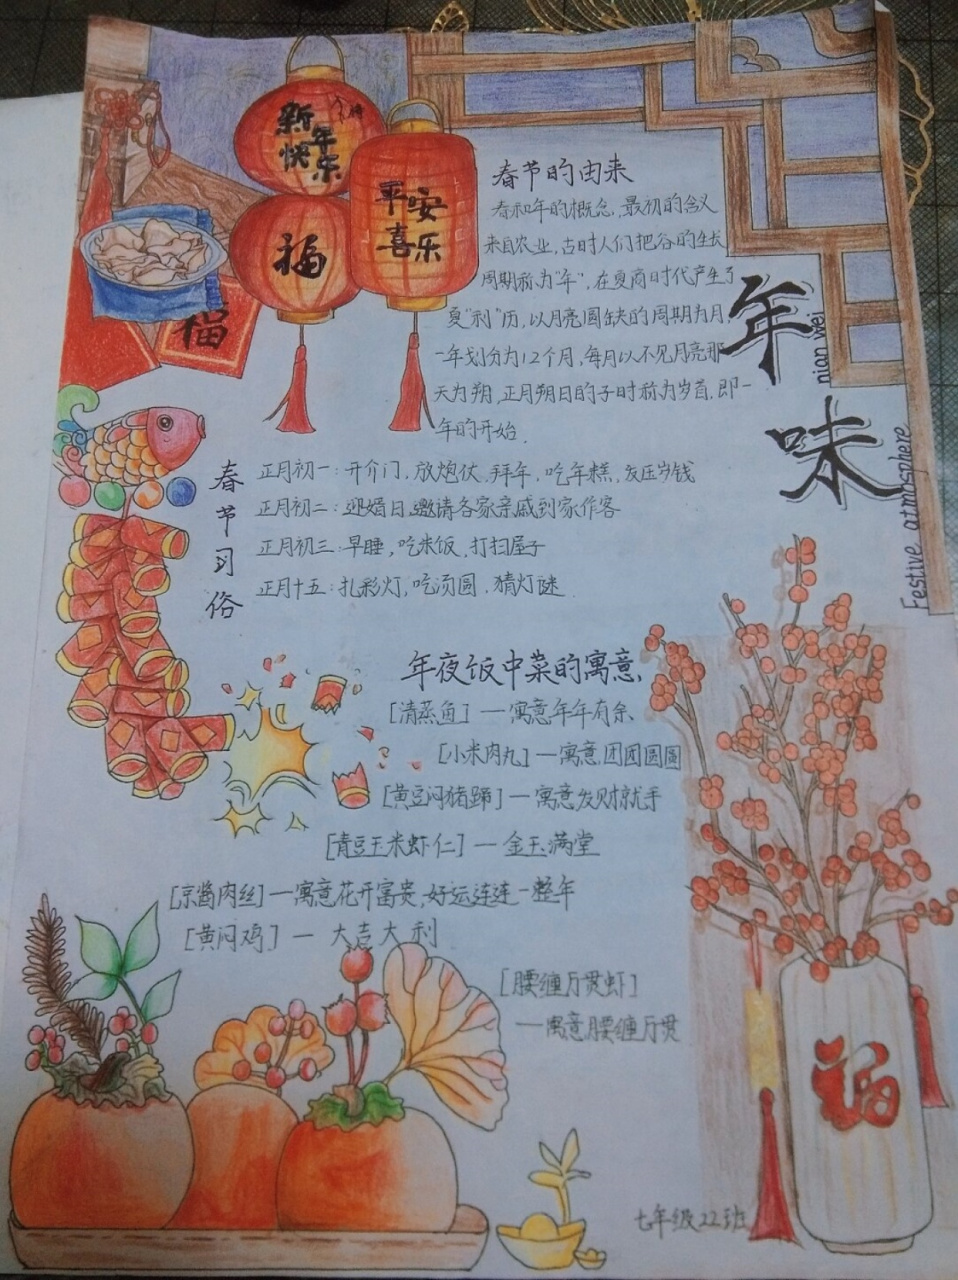 新年快乐
平安喜乐
福
福
春节的由来
春和年的概念,最初的含义
来自农业,古时人们把谷的生长
周期称为"年",在夏商时代产生了
夏"利"历,以月亮圆缺的周期为月,
一年划分为12个月,每月以不见月亮那
天为朔,正月朔日的子时称为岁首,即一
年的开始.
年味
nian wei
Festive atmosphere
春节习俗
正月初一:开介门,放炮仗,拜年,吃年糕,发压岁钱
正月初二:迎婿日,邀请各家亲戚到家作客
正月初三:早睡,吃米饭,打扫屋子
正月十五:扎彩灯,吃汤圆,猜灯谜.
年夜饭中菜的寓意.
[清蒸鱼]—寓意年年有余
[小米肉丸]—寓意团团圆圆
[黄豆闷猪蹄]—寓意发财就手
[青豆玉米虾仁]—金玉满堂
[京酱肉丝]—寓意花开富贵,好运连连一整年
[黄闷鸡]—大吉大利
[腰缠万贯虾]
—寓意腰缠万贯
福
七年级22班